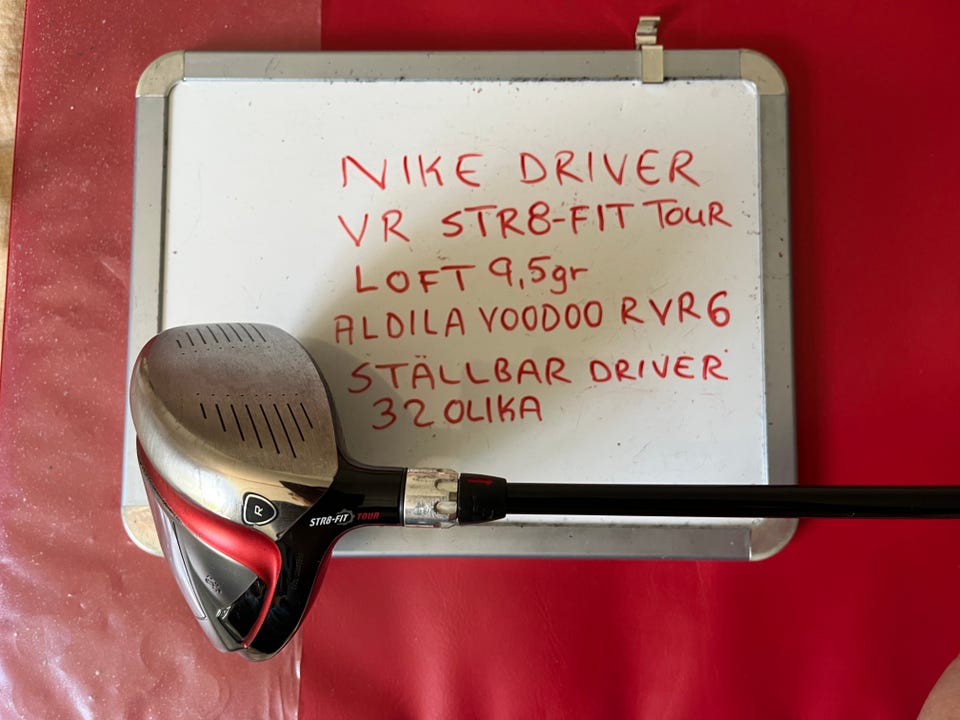 NIKE DRIVER
VR STR8-FIT TOUR
LOFT 9,5gr
ALDILA VOODOO RVR6
STÄLLBAR DRIVER
32 OLIKA
R
STR8-FIT TOUR